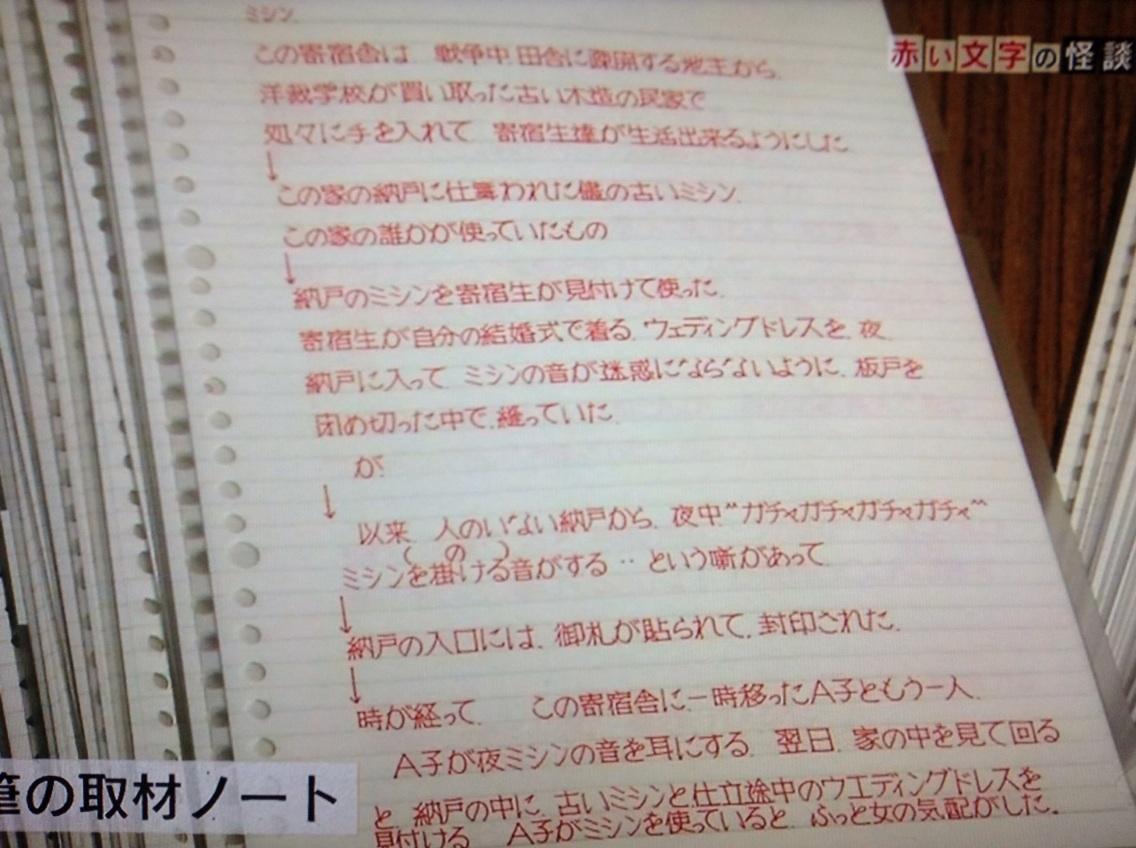 赤い文字の怪談
ミシン
この寄宿舎は 戦争中 田舎に疎開する地主から、
洋裁学校が買い取った古い木造の民家で
処々に手を入れて 寄宿生達が生活出来るようにした
↓
この家の納戸に仕舞われた儘の古いミシン、
この家の誰かが使っていたもの
↓
納戸のミシンを寄宿生が見付けて使った、
寄宿生が自分の結婚式で着る、ウェディングドレスを、夜
納戸に入って ミシンの音が迷惑にならないように、板戸を
閉め切った中で、縫っていた、
が
↓
以来、人のいない納戸から、夜中"ガチャガチャガチャガチャ"
の
ミシンを掛ける音がする‥という噺があって
↓
納戸の入口には、御札が貼られて、封印された、
↓
時が経って、 この寄宿舎に一時移ったA子ともう一人、
A子が夜ミシンの音を耳にする、翌日、家の中を見て回る
と、納戸の中に、古いミシンと仕立途中のウエディングドレスを
見付ける A子がミシンを使っていると、ふっと女の気配がした。
筆の取材ノート